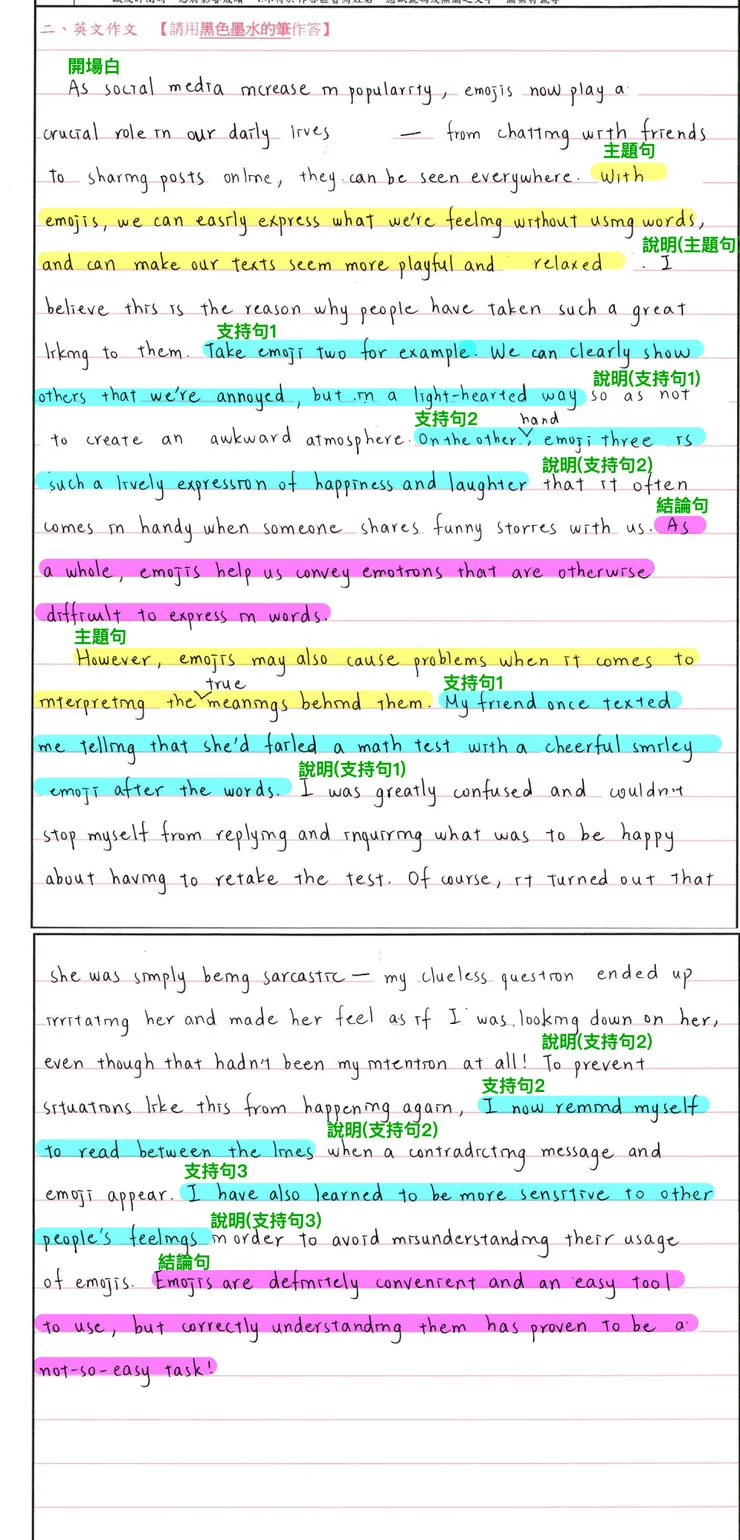 二、英文作文 【請用黑色墨水的筆作答】
開場白
As social media increase in popularity, emojis now play a
crucial role in our daily lives — from chatting with friends
主題句
to sharing posts online, they can be seen everywhere. With
emojis, we can easily express what we're feeling without using words,
說明(主題句)
and can make our texts seem more playful and relaxed. I
believe this is the reason why people have taken such a great
支持句1
liking to them. Take emoji two for example. We can clearly show
說明(支持句1)
others that we're annoyed, but in a light-hearted way so as not
支持句2
to create an awkward atmosphere. On the other hand, emoji three is
說明(支持句2)
such a lively expression of happiness and laughter that it often
結論句
comes in handy when someone shares funny stories with us. As
a whole, emojis help us convey emotions that are otherwise
difficult to express in words.
主題句
However, emojis may also cause problems when it comes to
支持句1
interpreting the true meanings behind them. My friend once texted
me telling that she'd failed a math test with a cheerful smiley
說明(支持句1)
emoji after the words. I was greatly confused and couldn't
stop myself from replying and inquiring what was to be happy
about having to retake the test. Of course, it turned out that
she was simply being sarcastic — my clueless question ended up
irritating her and made her feel as if I was looking down on her,
說明(支持句2)
even though that hadn't been my intention at all! To prevent
支持句2
situations like this from happening again, I now remind myself
說明(支持句2)
to read between the lines when a contradicting message and
支持句3
emoji appear. I have also learned to be more sensitive to other
說明(支持句3)
people's feelings in order to avoid misunderstanding their usage
結論句
of emojis. Emojis are definitely convenient and an easy tool
to use, but correctly understanding them has proven to be a
not-so-easy task!